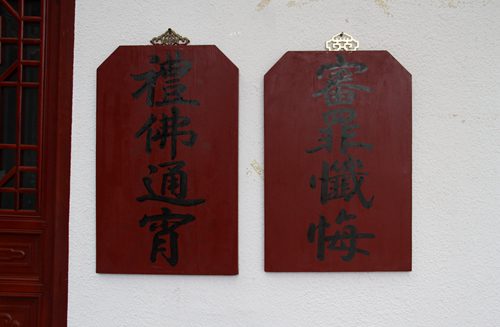 審罪懺悔
禮佛通宵